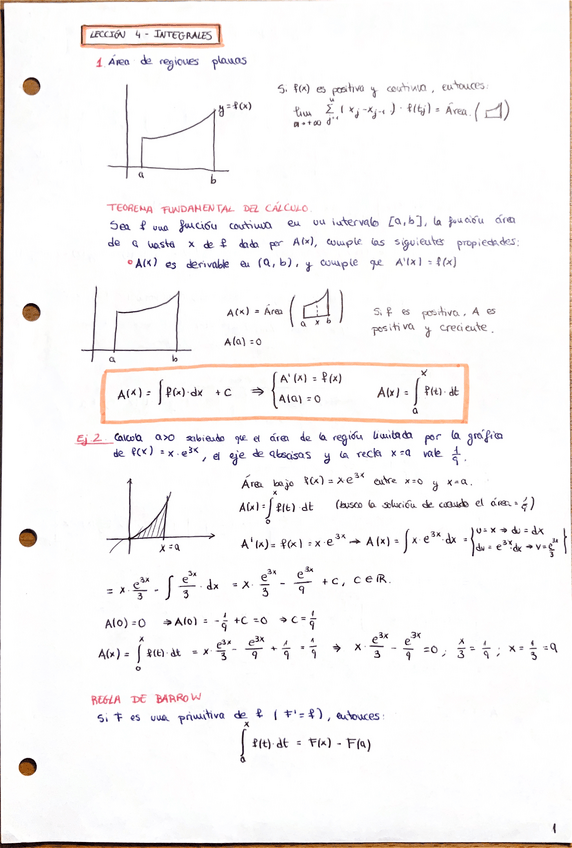 LECCIÓN 4 - INTEGRALES
1 Área de regiones planas
Si f(x) es positiva y continua, entonces:
lim n→+∞ Σ j=1 n (xj - xj-1) · f(tj) = Área ( )
y = f(x)
a b
TEOREMA FUNDAMENTAL DEL CÁLCULO.
Sea f una función continua en un intervalo [a,b], la función área
de a hasta x de f dada por A(x), cumple las siguientes propiedades:
A(x) es derivable en (a,b), y cumple que A'(x) = f(x)
A(x) = Área ( a x b )
A(a) = 0
Si f es positiva, A es
positiva y creciente.
a b
A(x) = ∫ f(x)·dx + C ⇒ { A'(x) = f(x) A(a) = 0 A(x) = ∫ₐˣ f(t)·dt
Ej 2 Calcula a>0 sabiendo que el área de la región limitada por la gráfica
de f(x) = x·e^3x, el eje de abscisas y la recta x=a vale 1/9.
Área bajo f(x) = x e^3x entre x=0 y x=a.
A(x) = ∫₀ˣ f(t) dt (busco la solución de cuando el área = 1/9)
A'(x) = f(x) = x·e^3x → A(x) = ∫ x·e^3x·dx = { u = x → du = dx dv = e^3x dx → v = e^3x/3 }
x = a
= x· e^3x/3 - ∫ e^3x/3 · dx = x· e^3x/3 - e^3x/9 + C, C ∈ ℝ.
A(0) = 0 → A(0) = -1/9 + C = 0 → C = 1/9
A(x) = ∫₀ˣ f(t)·dt = x· e^3x/3 - e^3x/9 + 1/9 = 1/9 ⇒ x· e^3x/3 - e^3x/9 = 0; x/3 = 1/9; x = 1/3 = a
REGLA DE BARROW
Si F es una primitiva de f (F' = f), entonces:
∫ₐˣ f(t)·dt = F(x) - F(a)
1